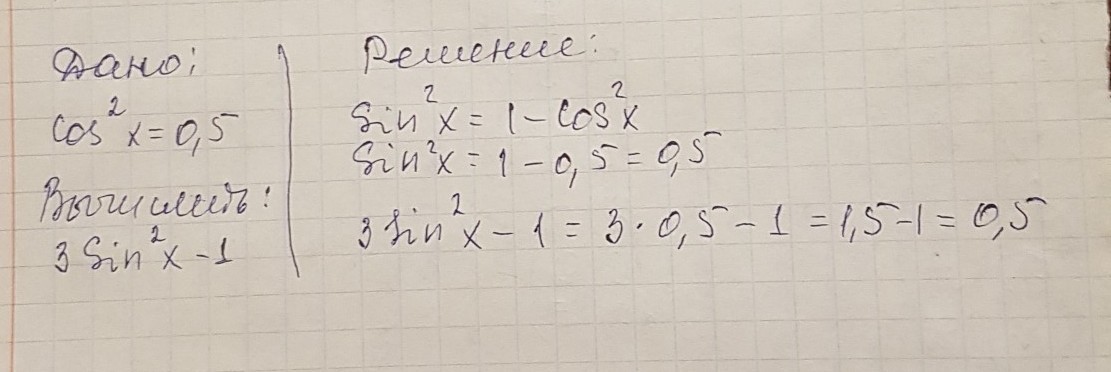 Дано:
cos²x = 0,5
Вычислить:
3 Sin²x - 1
Решение:
Sin²x = 1 - cos²x
Sin²x = 1 - 0,5 = 0,5
3 Sin²x - 1 = 3 · 0,5 - 1 = 1,5 - 1 = 0,5